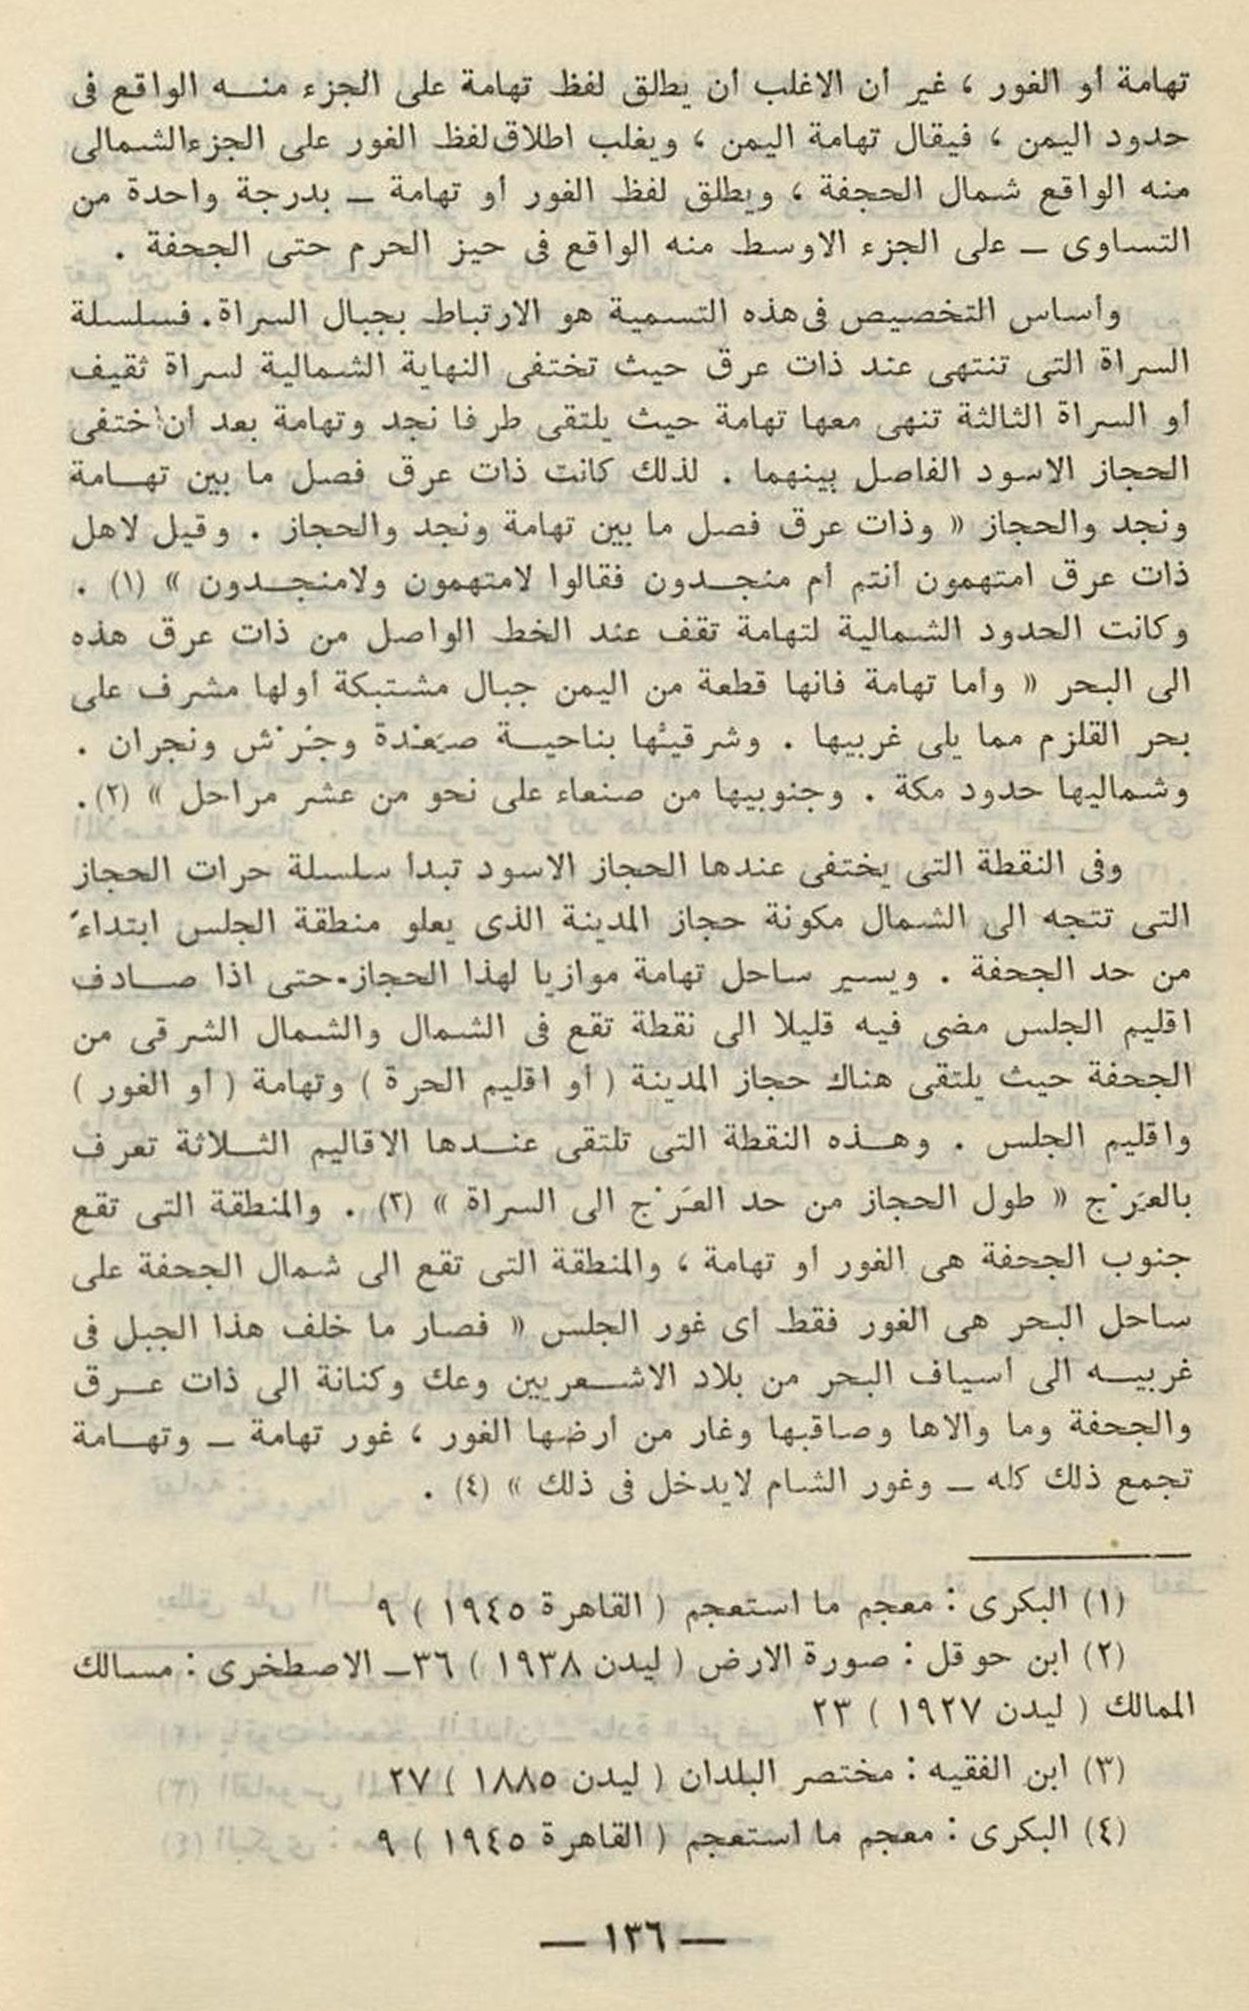 تهامة أو الغور ، غير أن الاغلب أن يطلق لفظ تهامة على الجزء منـه الواقع فى
حدود اليمن ، فيقال تهامة اليمن ، ويغلب اطلاق لفظ الغور على الجزء الشمالى
منه الواقع شمال الحجفة ، ويطلق لفظ الغور أو تهامة ـ بدرجة واحدة من
التساوى ـ على الجزء الاوسط منه الواقع فى حيز الحرم حتى الجحفة .
وأساس التخصيص فى هذه التسمية هو الارتباط بجبال السراة . فسلسلة
السراة التى تنتهى عند ذات عرق حيث تختفى النهاية الشمالية لسراة ثقيف
أو السراة الثالثة تنهى معها تهامة حيث يلتقى طرفا نجد وتهامة بعد أن اختفى
الحجاز الاسود الفاصل بينهما . لذلك كانت ذات عرق فصل ما بين تهـامة
ونجد والحجاز « وذات عرق فصل ما بين تهامة ونجد والحجاز . وقيل لاهل
ذات عرق أمتهمون أنتم أم منجـدون فقالوا لامتهمون ولامنجـدون » (١) .
وكانت الحدود الشمالية لتهامة تقف عند الخط الواصل من ذات عرق هذه
الى البحر « وأما تهامة فانها قطعة من اليمن جبال مشتبكة أولها مشرف على
بحر القلزم مما يلى غربيها . وشرقيّها بناحيـة صَعْدة وجُرْش ونجران .
وشماليها حدود مكة . وجنوبيها من صنعاء على نحو من عشر مراحل » (٢) .
وفى النقطة التى يختفى عندها الحجاز الاسود تبدأ سلسلة حرات الحجاز
التى تتجه الى الشمال مكونة حجاز المدينة الذى يعلو منطقة الجلس ابتداءً
من حد الجحفة . ويسير ساحل تهامة موازيا لهذا الحجاز . حتى اذا صـادف
اقليم الجلس مضى فيه قليلا الى نقطة تقع فى الشمال والشمال الشرقى من
الجحفة حيث يلتقى هناك حجاز المدينة ( أو اقليم الحرة ) وتهامة ( أو الغور )
واقليم الجلس . وهـذه النقطة التى تلتقى عنـدها الاقاليم الثـلاثة تعرف
بالعَرْج « طول الحجاز من حد العَرْج الى السراة » (٣) . والمنطقة التى تقع
جنوب الجحفة هى الغور أو تهامة ، والمنطقة التى تقع الى شمال الجحفة على
ساحل البحر هى الغور فقط أى غور الجلس « فصار ما خلف هذا الجبل فى
غربيـه الى أسياف البحر من بلاد الاشـعريين وعك وكنانة الى ذات عـرق
والجحفة وما والاها وصاقبها وغار من أرضها الغور ، غور تهامة ـ وتهـامة
تجمع ذلك كله ـ وغور الشام لايدخل فى ذلك » (٤) .
(١) البكرى : معجم ما استعجم ( القاهرة ١٩٤٥ ) ٩
(٢) ابن حوقل : صورة الارض ( ليدن ١٩٣٨ ) ٣٦ ـ الاصطخرى : مسالك
الممالك ( ليدن ١٩٢٧ ) ٢٣
(٣) ابن الفقيه : مختصر البلدان ( ليدن ١٨٨٥ ) ٢٧
(٤) البكرى : معجم ما استعجم ( القاهرة ١٩٤٥ ) ٩
— ١٣٦ —